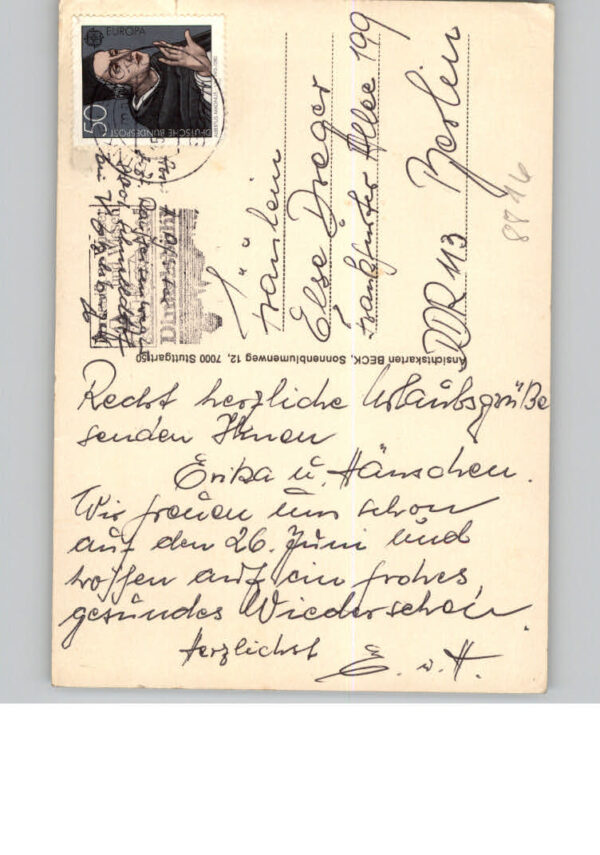 Recht herzliche Urlaubsgrüße
senden Ihnen
Erika u. Hänschen.
Wir freuen uns schon
auf den 26. Juni und
hoffen auf ein frohes,
gesundes Wiedersehen.
Herzlichst
E. u. H.
Fräulein
Else Dräger
Frankfurter Allee 199
DDR 113 Berlin
8816
Ansichtskarten BECK, Sonnenblumenweg 12, 7000 Stuttgart 50
EUROPA
50
DEUTSCHE BUNDESPOST